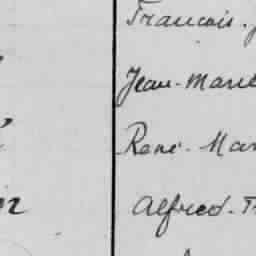 Francois.
Jean-Marie
René-Mar
Alfred-